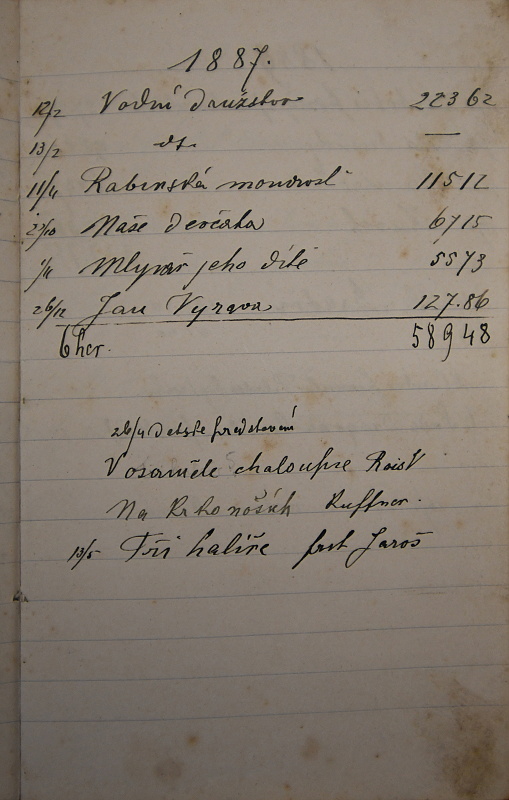 1887.
12/2 Vodní družstvo 223 62
13/2 dt. —
11/4 Rabínská moudrost 115 12
23/10 Naše děvčata 67 15
1/11 Mlynář jeho dítě 55 73
26/12 Jan Výrava 127.86
6 her. 589 48
26/4 Detske predstavení
V osamělé chaloupce Raist
Na Krkonošich Kuffner.
13/5 Tři halíře Jaroš